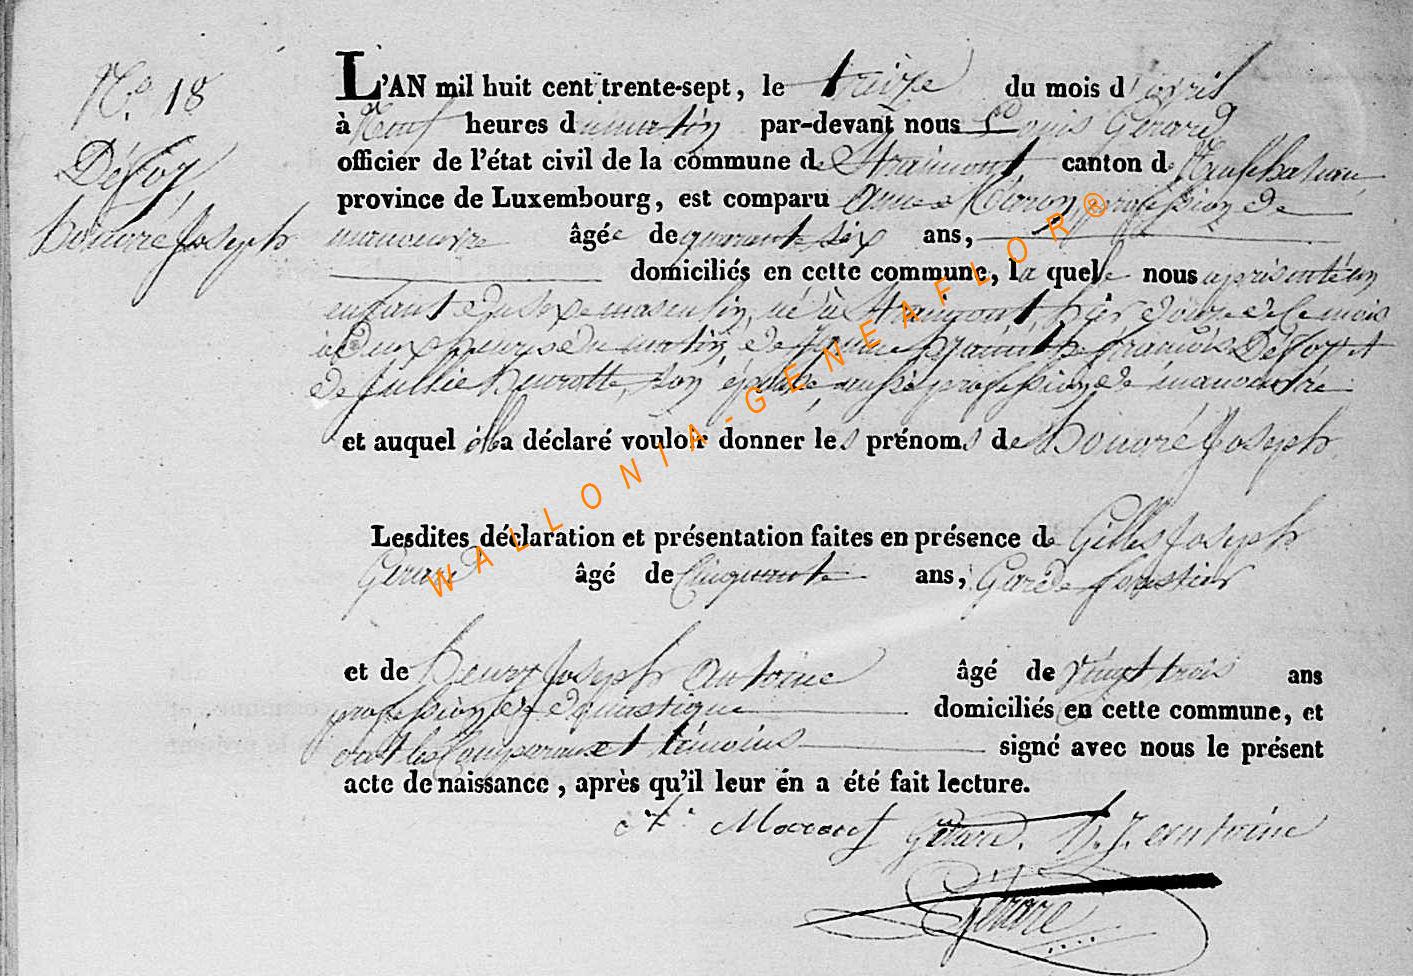 N.° 18
Défoy,
honoré Joseph
L'AN mil huit cent trente-sept, le treize du mois d'avril
à Neuf heures du matin par-devant nous Louis Gérard
officier de l'état civil de la commune de Straimont, canton de Neufchateau
province de Luxembourg, est comparu anne profession de
manoeuvre âgée de quarante six ans,
domiciliés en cette commune, laquelle nous a présenté un
enfant du sexe masculin, né à Straimont, hier douze de ce mois
à deux heures du matin, de françois Défoy et
de Jullie son épouse, aussi profession de manoeuvre
et auquel elle a déclaré vouloir donner les prénoms de honoré Joseph
Lesdites déclaration et présentation faites en présence de Gilles Joseph
Gérard âgé de Cinquante ans, Garde forestier
et de henry Joseph antoine âgé de vingt trois ans
profession de domestique domiciliés en cette commune, et
ont les comparant et témoins signé avec nous le présent
acte de naissance, après qu'il leur en a été fait lecture.
Gérard. h. J. antoine
Gérard
WALLONIA-GENEAFLOR®